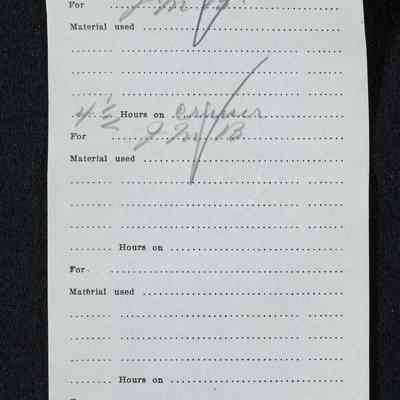 For J M B.
Material used
4 1/2 Hours on Cruiser
For J M B
Material used
Hours on
For
Material used
Hours on